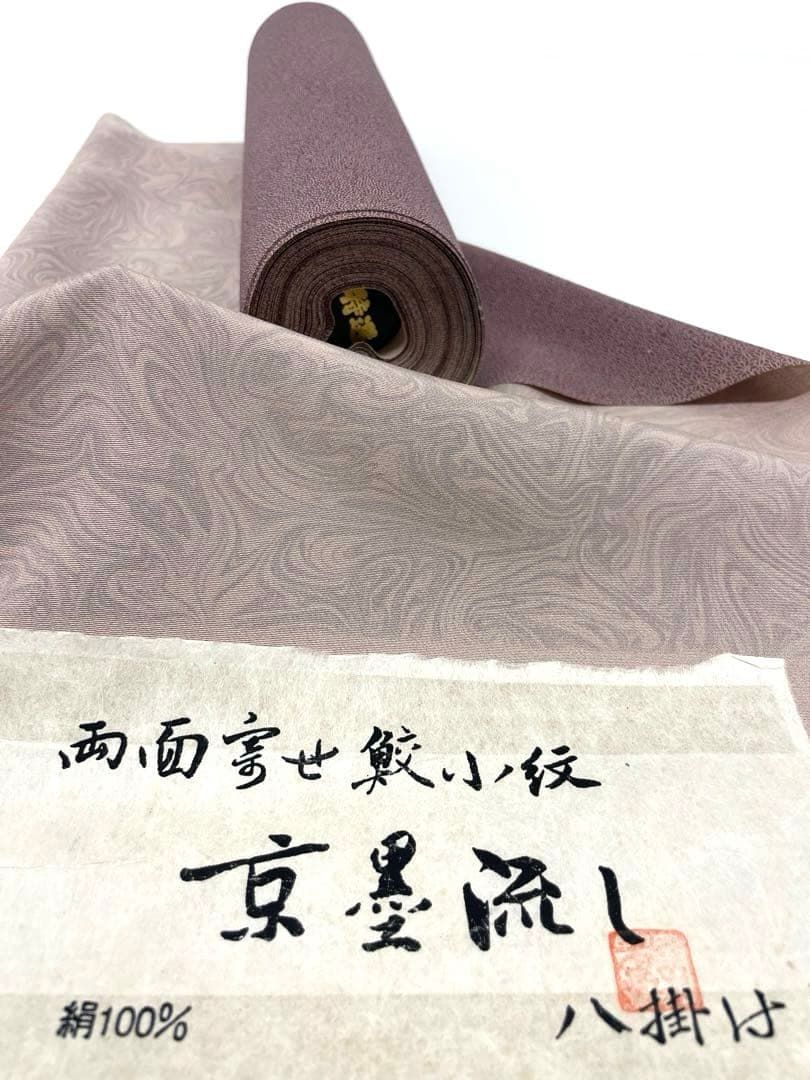 両面寄せ鮫小紋
京墨流し
絹100%
八掛け